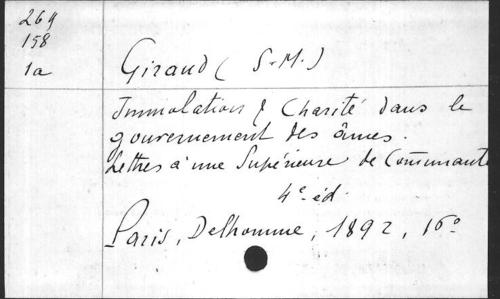 269
158
1a
Giraud (S.-M.)
Immolation & Charité dans le
gouvernement des âmes.
Lettres à une Supérieure de Communauté
4e éd.
Paris, Delhomme, 1892, 16o